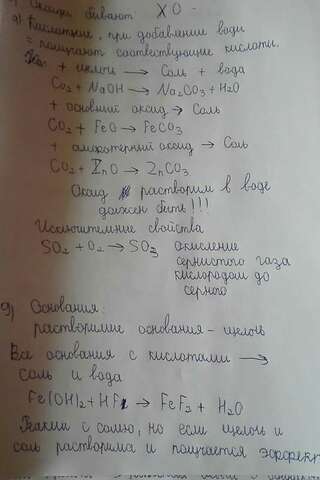 Оксиды бывают XO
а) Кислотные, при добавлении воды
= получают соответствующие кислоты.
+ щелочь → Соль + вода
CO2 + NaOH → Na2CO3 + H2O
+ основный оксид → Соль
CO2 + FeO → FeCO3
+ амфотерный оксид → Соль
CO2 + ZnO → ZnCO3
Оксид растворим в воде
должен быть!!!
Исключительные свойства
SO2 + O2 → SO3 окисление
сернистого газа
кислородом до
серного
9) Основания:
растворимые основания - щелочь
Все основания с кислотами →
соль и вода
Fe(OH)2 + HF → FeF2 + H2O
с солью, но если щелочь и
соль растворима и получается эффект